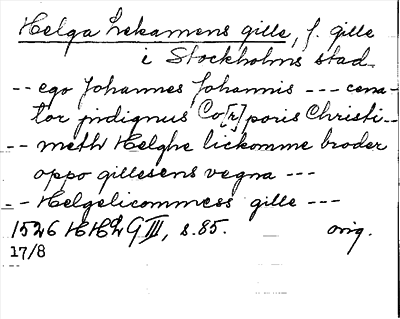 Helga Lekamens gille, f. gille
i Stockholms stad
-- ego Johannes Johannis --- cena-
tor pridignus Co[r]poris Christi --
-- meth Helghe lickomme broder
oppo gillesens vegna ---
-- Helgelicommess gille ---
1526 HH2 G III, s. 85. orig.
17/8